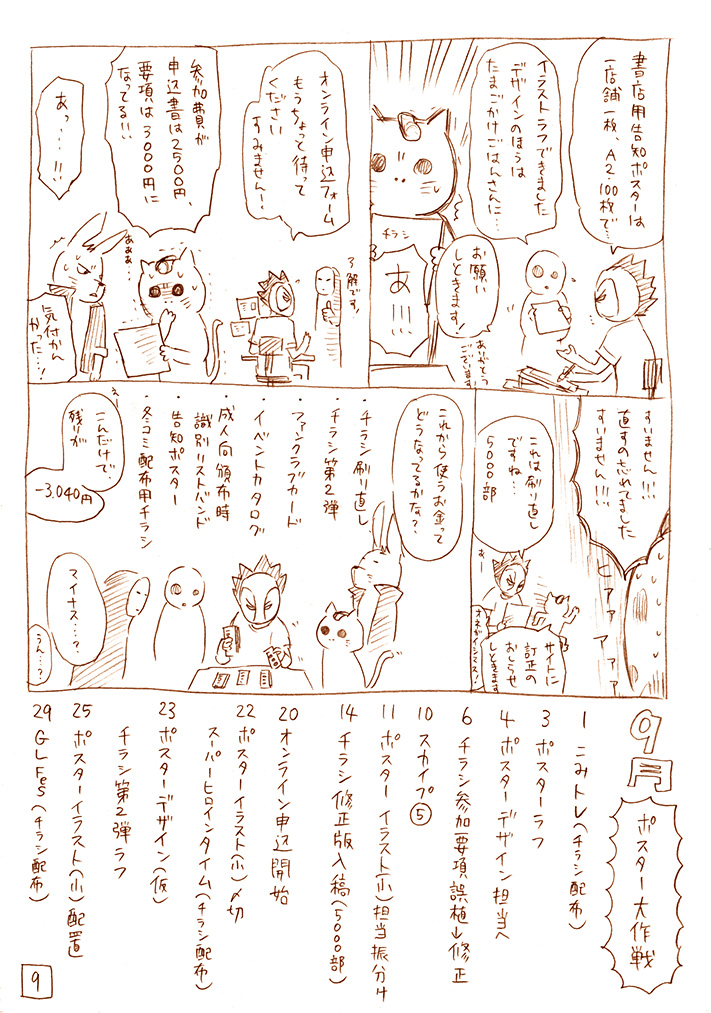 書店用告知ポスターは
一店舗一枚、A2・100枚で…
イラストラフできました
デザインのほうは
たまごかけごはんさんに…
お願い
しときます!
ありがとう
ございます
チラシ
あ!!!
オンライン申込フォーム
もうちょっと待って
ください
すみません!
了解です!
参加費が
申込書は2500円、
要項は3000円に
なってる!!
あぁぁ…
あっ…!!
気付かん
かった…!
すいません!!!
直すの忘れてました
すいません!!!
とァァァァァ
これは刷り直し
ですね…
5000部
サイトに
訂正の
おしらせ
しときます
オネガイシマス!
これから使うお金って
どうなってるかな?
・チラシ刷り直し
・チラシ第2弾
・ファンクラブカード
・イベントカタログ
・成人向頒布時
識別リストバンド
・告知ポスター
・冬コミ配布用チラシ
えー
こんだけで、
残りが
-3,040円
マイナス…?
うん…?
9月
ポスター大作戦
1 こみトレ(チラシ配布)
3 ポスターラフ
4 ポスターデザイン担当へ
6 チラシ参加要項誤植↓修正
10 スカイプ⑤
11 ポスターイラスト(小)担当振分け
14 チラシ修正版入稿(5000部)
20 オンライン申込開始
22 ポスターイラスト(小)〆切
スーパーヒロインタイム(チラシ配布)
23 ポスターデザイン(仮)
チラシ第2弾ラフ
25 ポスターイラスト(小)配置
29 GLFes(チラシ配布)
9